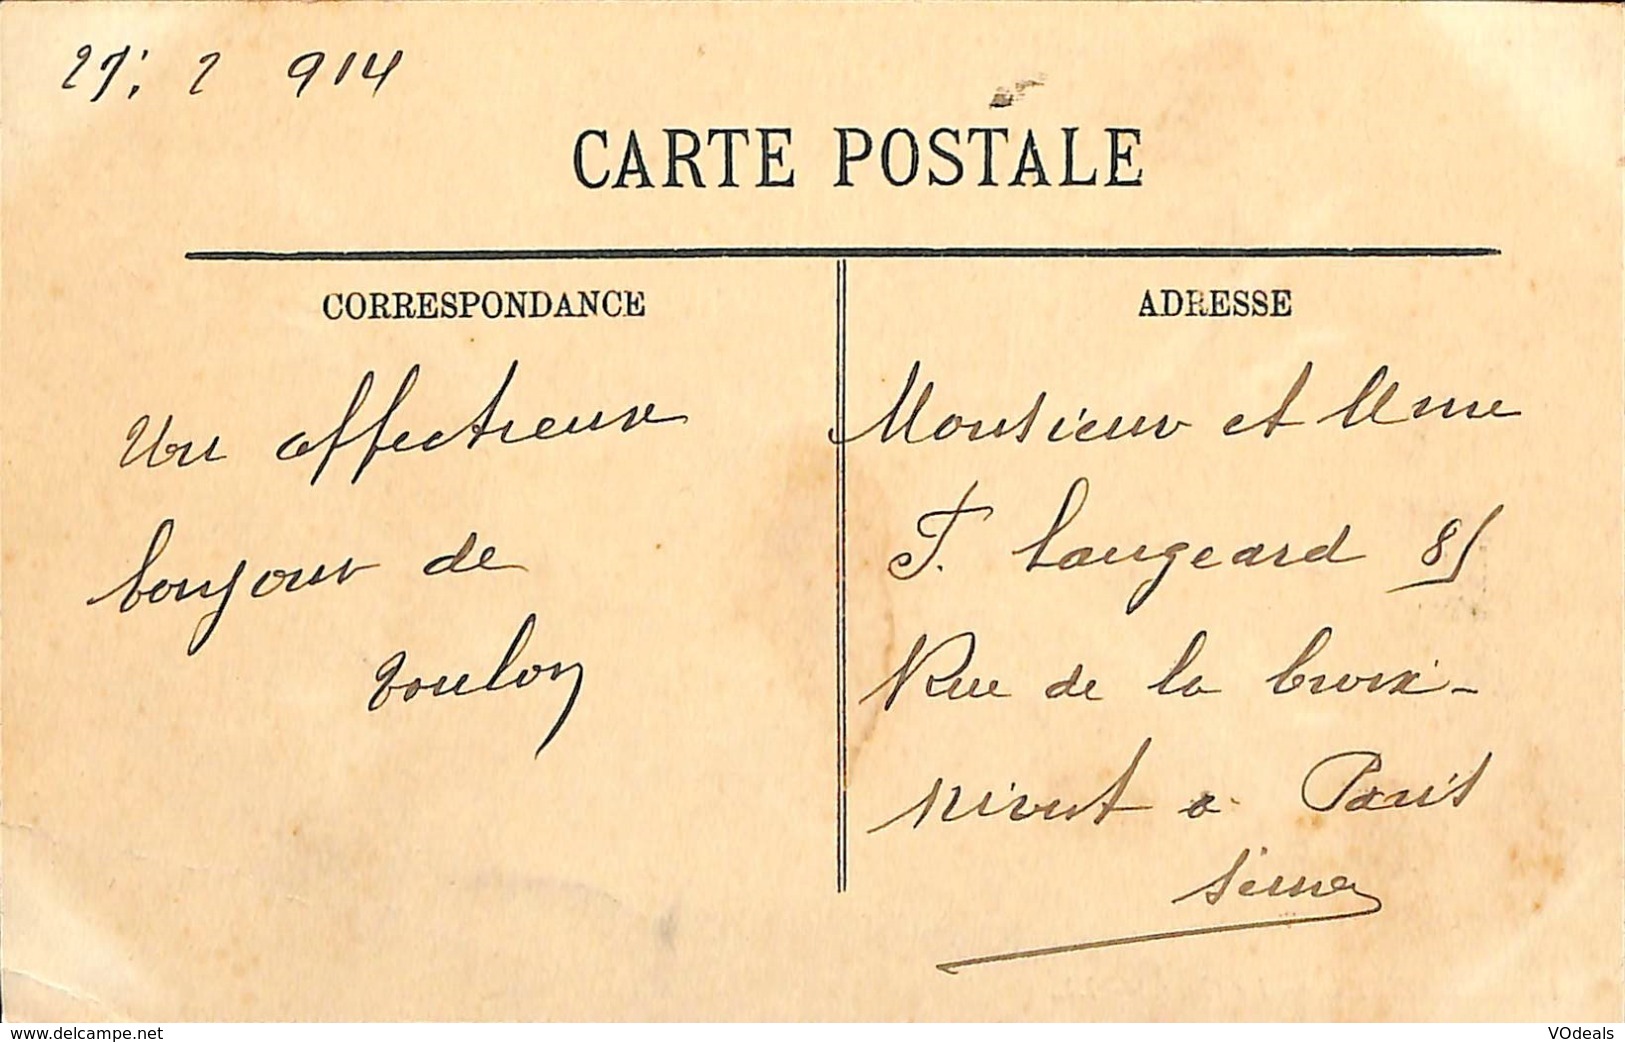 27; 2 914
CARTE POSTALE
CORRESPONDANCE
Un affectueux
bonjour de
Toulon
ADRESSE
Monsieur et Mme
F. Langeard 85
Rue de la Croix-
Nivert a Paris
Seine
www.delcampe.net
VOdeals